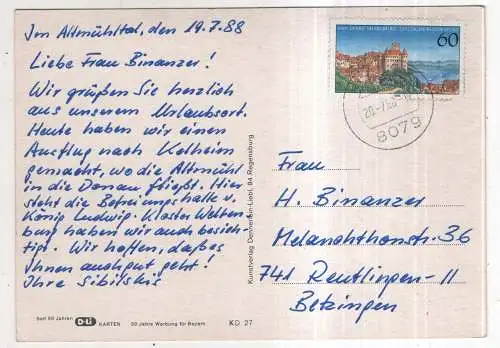 Im Altmühltal, den 19.7.88
Liebe Frau Binanzer!
Wir grüßen Sie herzlich
aus unserem Urlaubsort.
Heute haben wir einen
Ausflug nach Kelheim
gemacht, wo die Altmühl
in die Donau fließt. Hier
steht die Befreiungshalle v.
König Ludwig. Kloster Welten-
burg haben wir auch besich-
tigt. Wir hoffen, daß es
Ihnen auch gut geht!
Ihre Sibilskis
Seit 50 Jahren
D-Li KARTEN 50 Jahre Werbung für Bayern KD 27
Kunstverlag Liebl, 84 Regensburg
60
20.-7.88
8079
Frau
H. Binanzer
Melanchthonstr. 36
741 Reutlingen-11
Betzingen